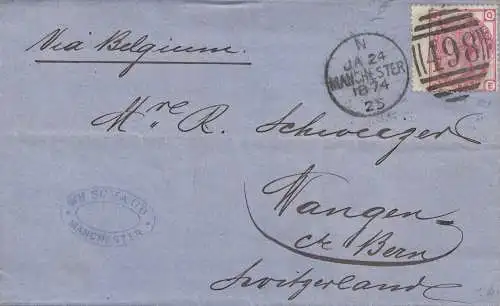 Via Belgium.
N
JA 24
MANCHESTER
1874
25
498
G
E
Mre R. Schweeger
Wangen
Ct Bern
Switzerland
MANCHESTER